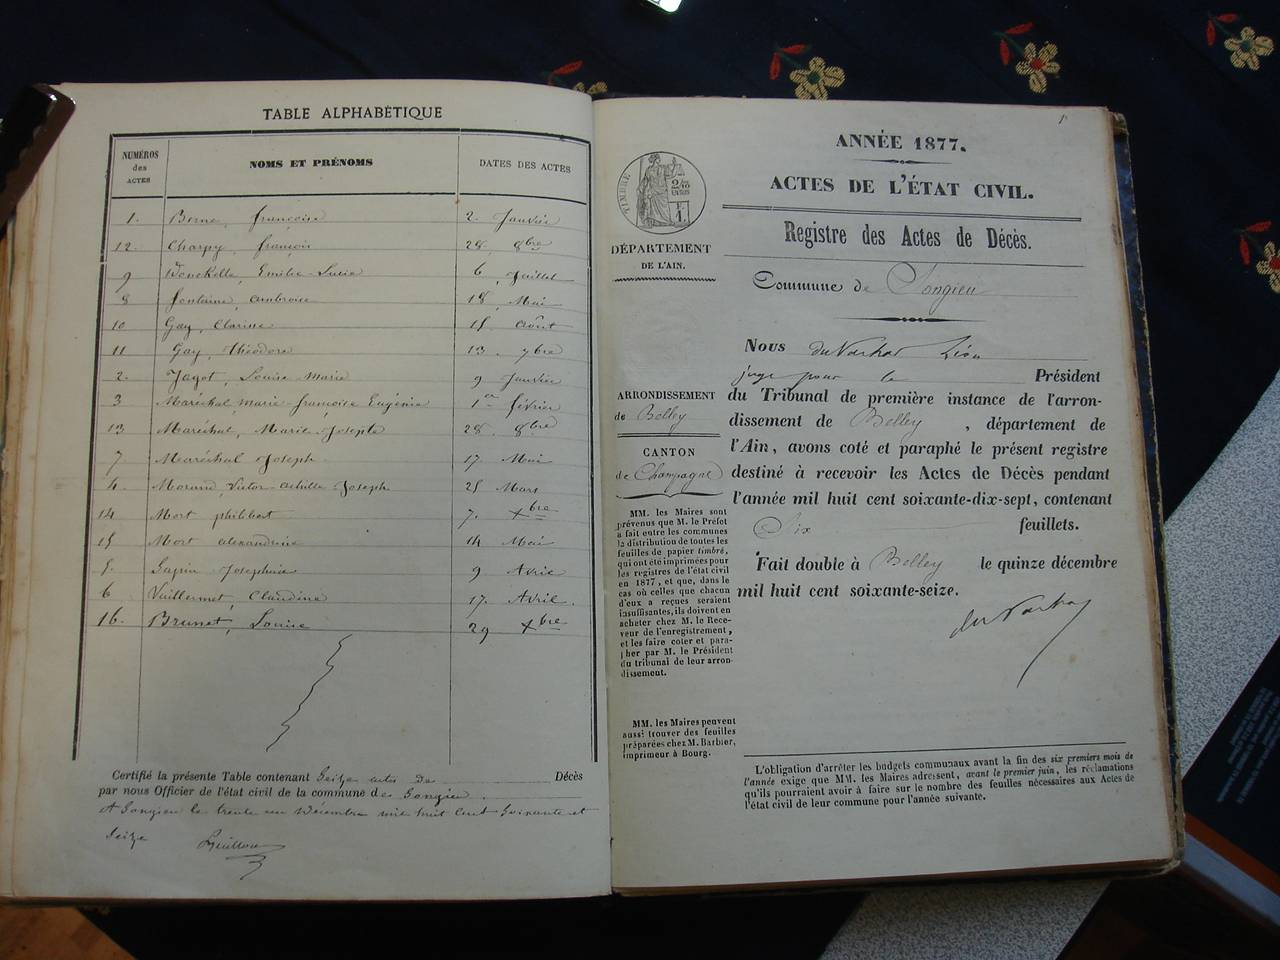 TABLE ALPHABÉTIQUE
NUMÉROS des ACTES | NOMS ET PRÉNOMS | DATES DES ACTES
1. Berne, françoise 2. Janvier
12. Charpy, françois 28, 8bre
9 Emilie-Lucie 6, Juillet
8 fontaine, ambroise 18, Mai
10 Gay, Clarisse 15 août
11 Gay, Théodore 13. 7bre
2. Jagot, Louise-Marie 9 Janvier
3 Maréchal, marie-françoise Eugénie 1er février
13 Maréchal, Marie-Josepte 28. 8bre
7 Maréchal Joseph 17. Mai
4. Morand, Victor-achille-Joseph 25 Mars
14 Mort philibert 7. Xbre
15 Mort alexandrine 14 Mai
5. Josephine 9 Avril
6 Vuillermet, Claudine 17. Avril.
16. Brunet, Louise 29 Xbre
Certifié la présente Table contenant Seize actes de Décès
par nous Officier de l'état civil de la commune de Songieu
A Songieu le trente un Décembre mil huit Cent Soixante et
Seize
1
ANNÉE 1877.
ACTES DE L'ÉTAT CIVIL.
Registre des Actes de Décès.
Commune de Songieu
TIMBRE
DÉPARTEMENT
DE L'AIN.
ARRONDISSEMENT
de Belley
CANTON
de Champagne
MM. les Maires sont
prévenus que M. le Préfet
a fait entre les communes
la distribution de toutes les
feuilles de papier timbré,
qui ont été imprimées pour
les registres de l'état civil
en 1877, et que, dans le
cas où celles que chacun
d'eux a reçues seraient
insuffisantes, ils doivent en
acheter chez M. le Rece-
veur de l'enregistrement,
et les faire coter et para-
pher par M. le Président
du tribunal de leur arron-
dissement.
MM. les Maires peuvent
aussi trouver des feuilles
préparées chez M. Barbier,
imprimeur à Bourg.
Nous Léon
juge pour le Président
du Tribunal de première instance de l'arron-
dissement de Belley, département de
l'Ain, avons coté et paraphé le présent registre
destiné à recevoir les Actes de Décès pendant
l'année mil huit cent soixante-dix-sept, contenant
Six feuillets.
Fait double à Belley le quinze décembre
mil huit cent soixante-seize.
L'obligation d'arrêter les budgets communaux avant la fin des six premiers mois de
l'année exige que MM. les Maires adressent, avant le premier juin, les réclamations
qu'ils pourraient avoir à faire sur le nombre des feuilles nécessaires aux Actes de
l'état civil de leur commune pour l'année suivante.